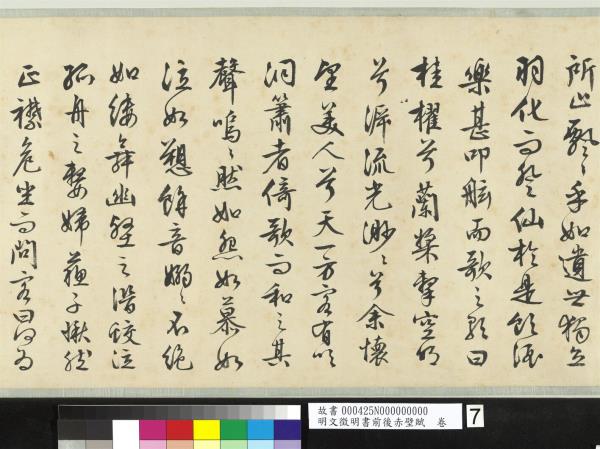 所止飄〻乎如遺世獨立
羽化而登仙於是飲酒
樂甚叩舷而歌之歌曰
桂櫂兮蘭槳擊空明
兮泝流光渺〻兮余懷
望美人兮天一方客有吹
洞簫者倚歌而和之其
聲嗚〻然如怨如慕如
泣如愬餘音嫋〻不絕
如縷舞幽壑之潛蛟泣
孤舟之嫠婦蘇子愀然
正襟危坐而問客曰何為
故書 000425N000000000
明文徵明書前後赤壁賦 卷
7